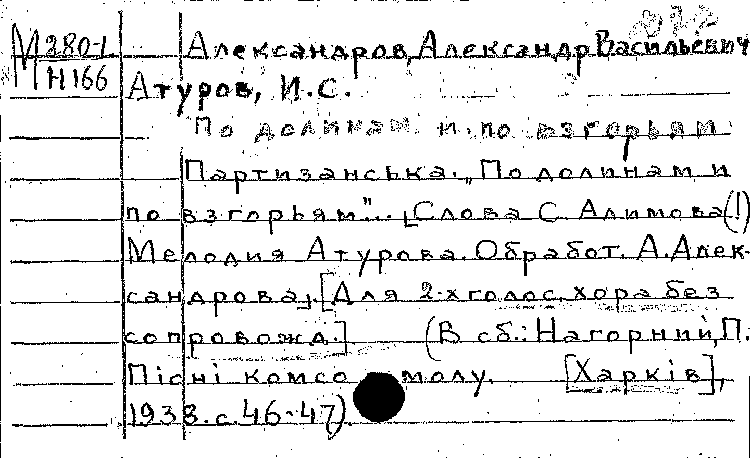 М280-1 Александров, Александр Васильевич
Н166 Атуров, И.С.
По долинам и по взгорьям
Партизанська. „По долинам и
по взгорьям". [Слова С. Алимова (!)
Мелодия Атурова. Обработ. А. Алек-
сандрова]. [Для 2-х голос. хора без
сопровожд.] (В сб.: Нагорний, П.
Пісні комсомолу. [Харків],
1938. с. 46-47).